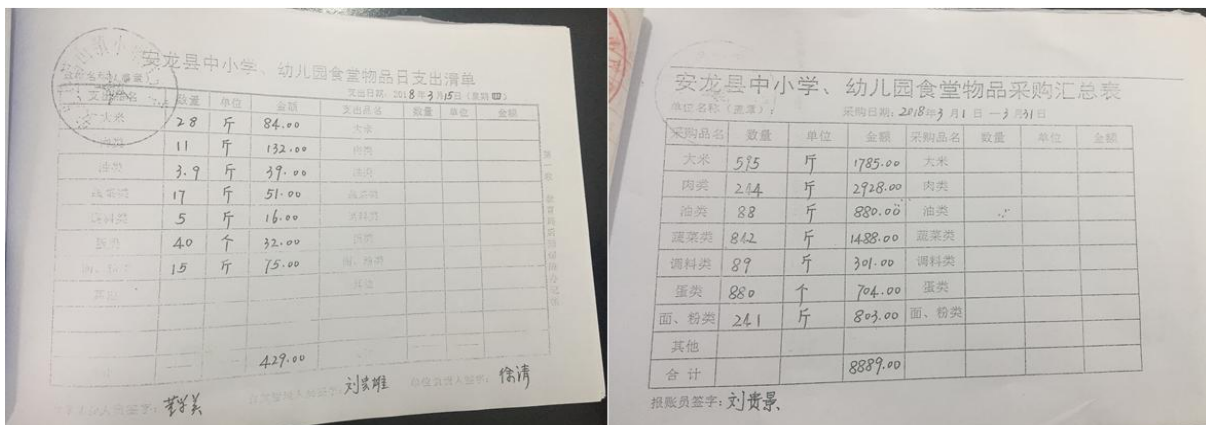 安龙县中小学、幼儿园食堂物品日支出清单
支出日期: 2018年3月15日(星期四)
支出品名 数量 单位 金额 支出品名 数量 单位 金额
大米 28 斤 84.00 大米
肉类 11 斤 132.00 肉类
油类 3.9 斤 39.00 油类
蔬菜类 17 斤 51.00 蔬菜类
调料类 5 斤 16.00 调料类
蛋类 40 个 32.00 蛋类
面、粉类 15 斤 75.00 面、粉类
其他 其他
429.00
签字: 徐清
安龙县中小学、幼儿园食堂物品采购汇总表
单位名称(盖章): 采购日期: 2018年3月1日—3月31日
采购品名 数量 单位 金额 采购品名 数量 单位 金额
大米 595 斤 1785.00 大米
肉类 244 斤 2928.00 肉类
油类 88 斤 880.00 油类
蔬菜类 842 斤 1488.00 蔬菜类
调料类 89 斤 301.00 调料类
蛋类 880 个 704.00 蛋类
面、粉类 241 斤 803.00 面、粉类
其他
合计 8889.00
报账员签字: 刘贵景